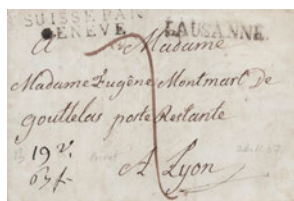 SUISSE PAR
GENÈVE
LAUSANNE.
A Madame
Madame Eugène Montmart de
gouttelas poste Restante
A Lyon
19